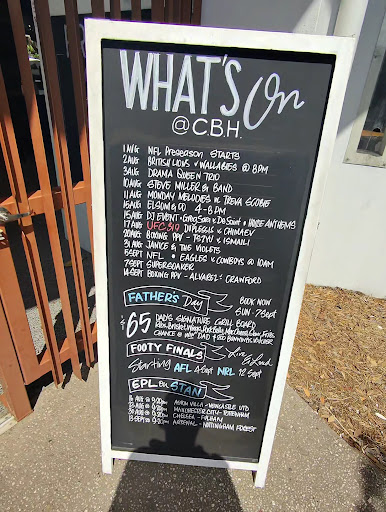 WHAT'S On
@ C.B.H.
1 AUG NFL Preseason STARTS
2 AUG BRITISH LIONS v WALLABIES @ 8PM
3 AUG DRAMA QUEEN TRIO
10 AUG STEVE MILLER BAND
11 AUG MONDAY MELODIES w TREVA SCOBIE
15 AUG ELSON & CO 4-8PM
15 AUG DJ EVENT • HOUSE ANTHEMS
17 AUG UFC 319 DU PLESSIS v CHIMAEV
20 AUG BOXING PPV - TSZYU v
31 AUG JANICE & THE VIOLETS
5 SEPT NFL • EAGLES v COWBOYS @ 10AM
7 SEPT SUPERSOAKER
14 SEPT BOXING PPV - ALVAREZ v CRAWFORD
FATHER'S Day BOOK NOW
SUN - 7 Sept
$65 DAD'S SIGNATURE GRILL BOARD
CHANCE to WIN DAD a $50 BUNNINGS VOUCHER
FOOTY FINALS Live & Loud
Starting AFL 4 Sept NRL 12 Sept
EPL on STAN
ASTON VILLA - NEWCASTLE UTD
MANCHESTER CITY - TOTTENHAM
CHELSEA - FULHAM
13 SEPT @ 9:30PM ARSENAL - NOTTINGHAM FOREST